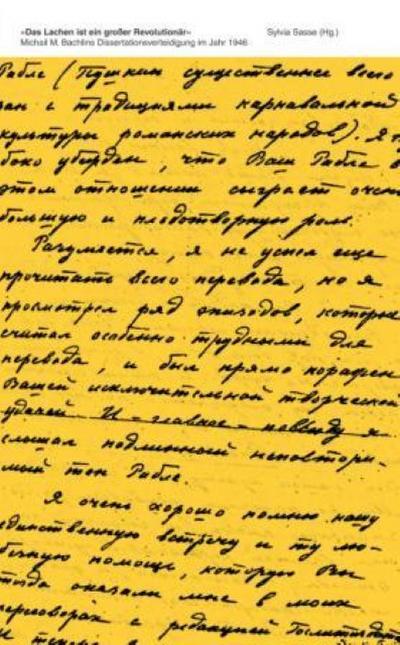 »Das Lachen ist ein großer Revolutionär« Sylvia Sasse (Hg.)
Michail M. Bachtins Dissertationsverteidigung im Jahr 1946
Рабле (Пушкин существеннее всего
зан с традициями карнавальной
культуры романских народов). Я г
боко убежден, что Ваш Рабле в
этом отношении сыграет очень
большую и плодотворную роль.
Разумеется, я не успел еще
прочитать всего перевода, но я
просмотрел ряд эпизодов, которые
считал особенно трудными для
перевода, и был прямо поражен
Вашей исключительной творческой
удачей И – главное –
слышал подлинный неповтори-
мый тон Рабле.
Я очень хорошо помню нашу
единственную встречу и ту лю-
безную помощь, которую Вы
тогда оказали мне в моих
переговорах с редакцией Гослитиздата
И теперь в